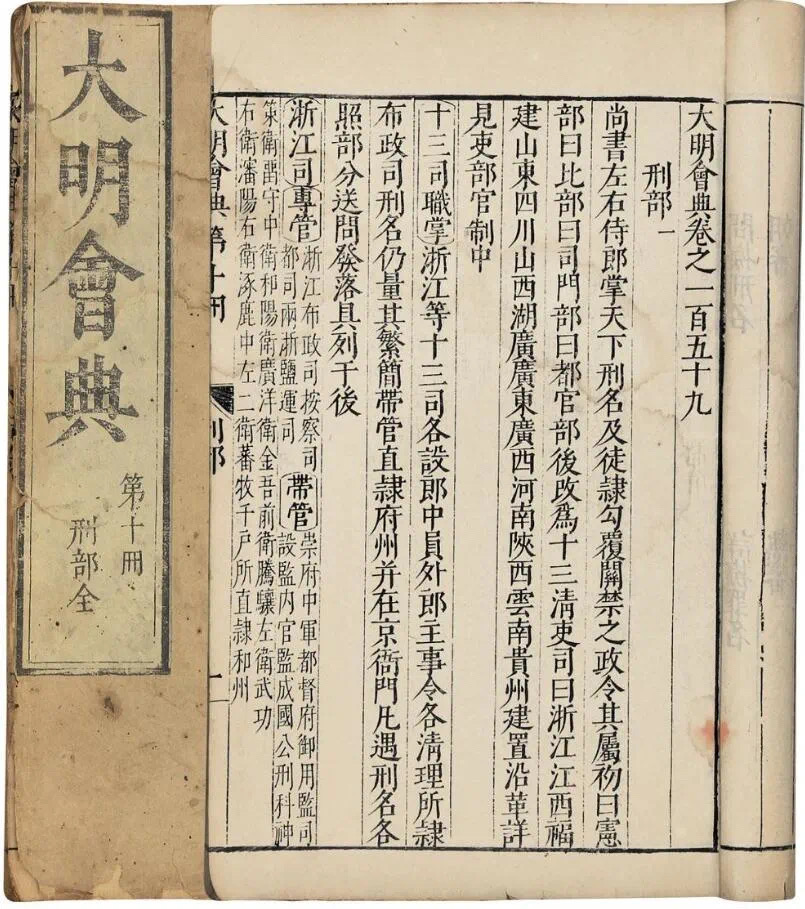 大明會典
第十冊
刑部全
大明會典卷之一百五十九
刑部一
尚書左右侍郎掌天下刑名及徒隸勾覆關禁之政令其屬初曰憲
部曰比部曰司門部曰都官部後改爲十三清吏司曰浙江江西福
建山東四川山西湖廣廣東廣西河南陝西雲南貴州建置沿革詳
見吏部官制中
十三司職掌浙江等十三司各設郎中員外郎主事令各清理所隸
布政司刑名仍量其繁簡帶管直隸府州并在京衙門凡遇刑名各
照部分送問發落具列于後
浙江司專管
浙江布政司按察司
都司兩浙鹽運司
帶管
崇府中軍都督府御用監司
設監內官監成國公刑科神
策衛留守中衛和陽衛廣洋衛金吾前衛騰驤左衛武功
右衛瀋陽右衛涿鹿中左二衛蕃牧千戶所直隸和州
大明會典第十冊
刑部